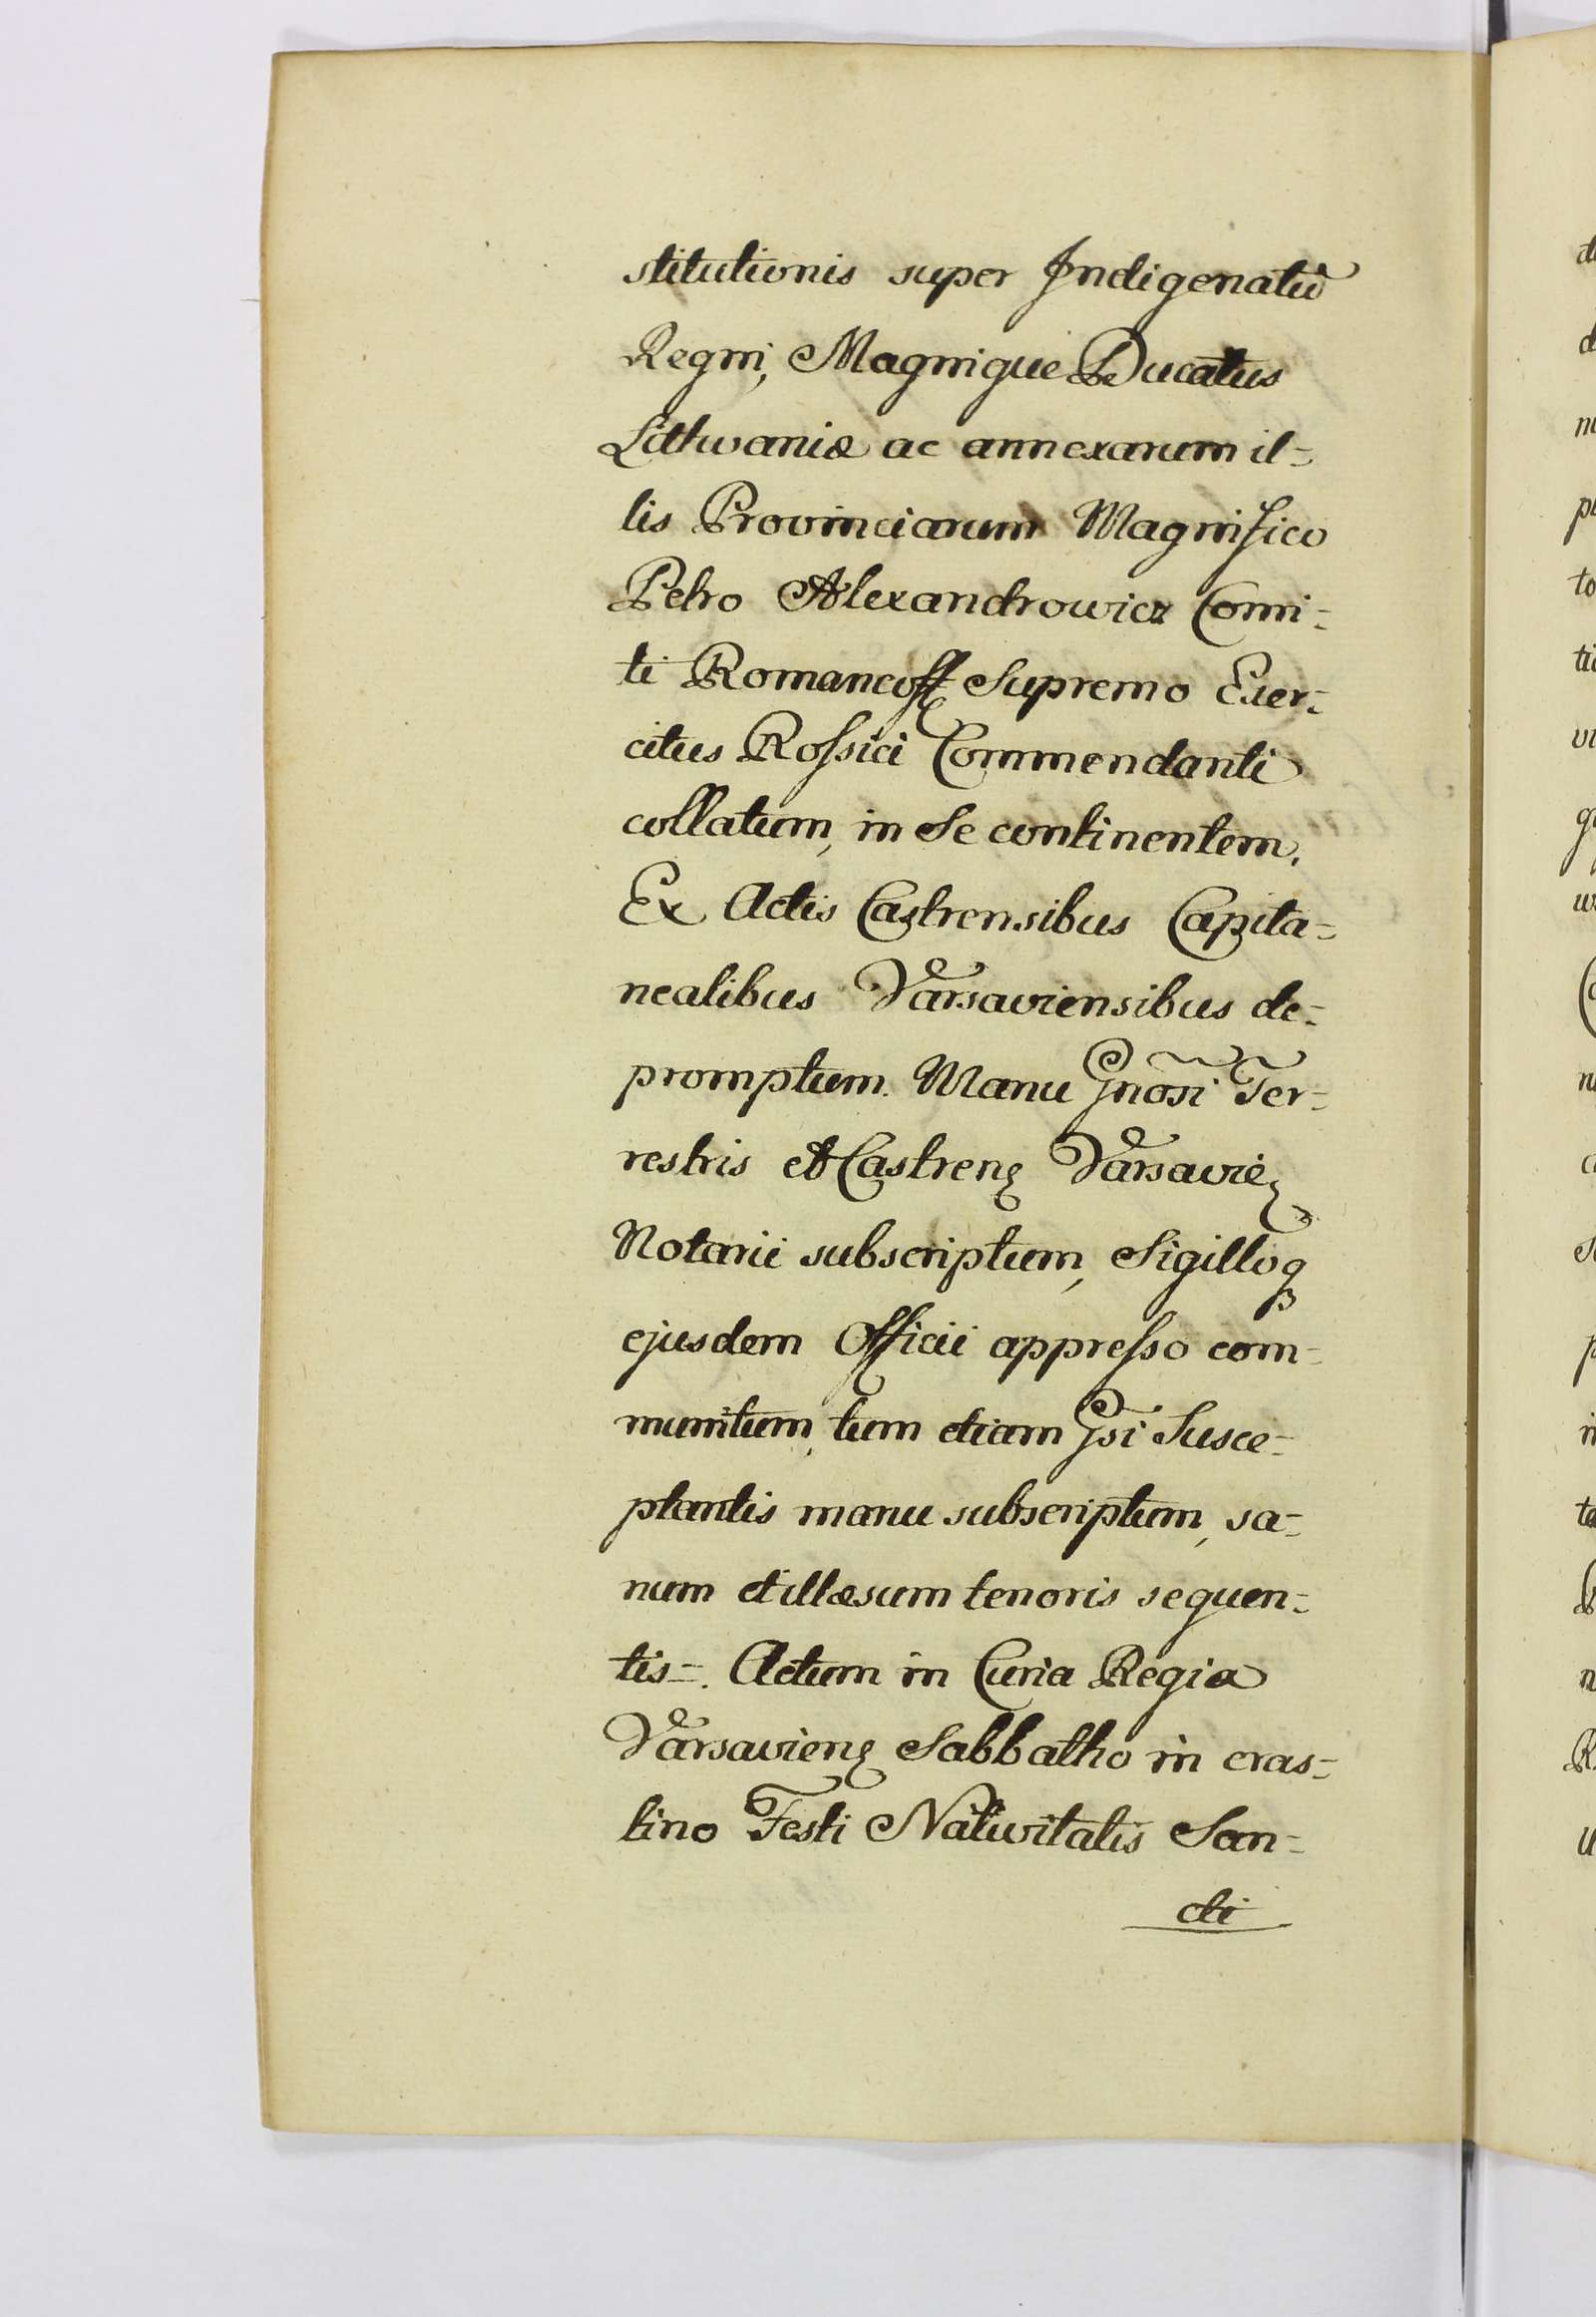 stitutionis super Indigenatû
Regni, Magnique Ducatus
Lithvaniæ ac annexarum il=
lis Provinciarum Magnifico
Petro Alexandrowicz Comi=
ti Romancoff Supremo Exer=
citus Rossici Commendanti
collatum, in Se continentem.
Ex Actis Castrensibus Capita=
nealibus Varsaviensibus de=
promptum. Manu Gnosi Ter=
restris et Castreng Varsavie
Notarii subscriptum, Sigilloq
ejusdem Officii appresso com=
munitum, tum etiam Gsi Susce=
ptantis manu subscriptum, sa=
num et illæsum tenoris sequen=
tis=. Actum in Curia Regia
Varsavieng Sabbatho in cras=
tino Festi Nativitatis San=
cti